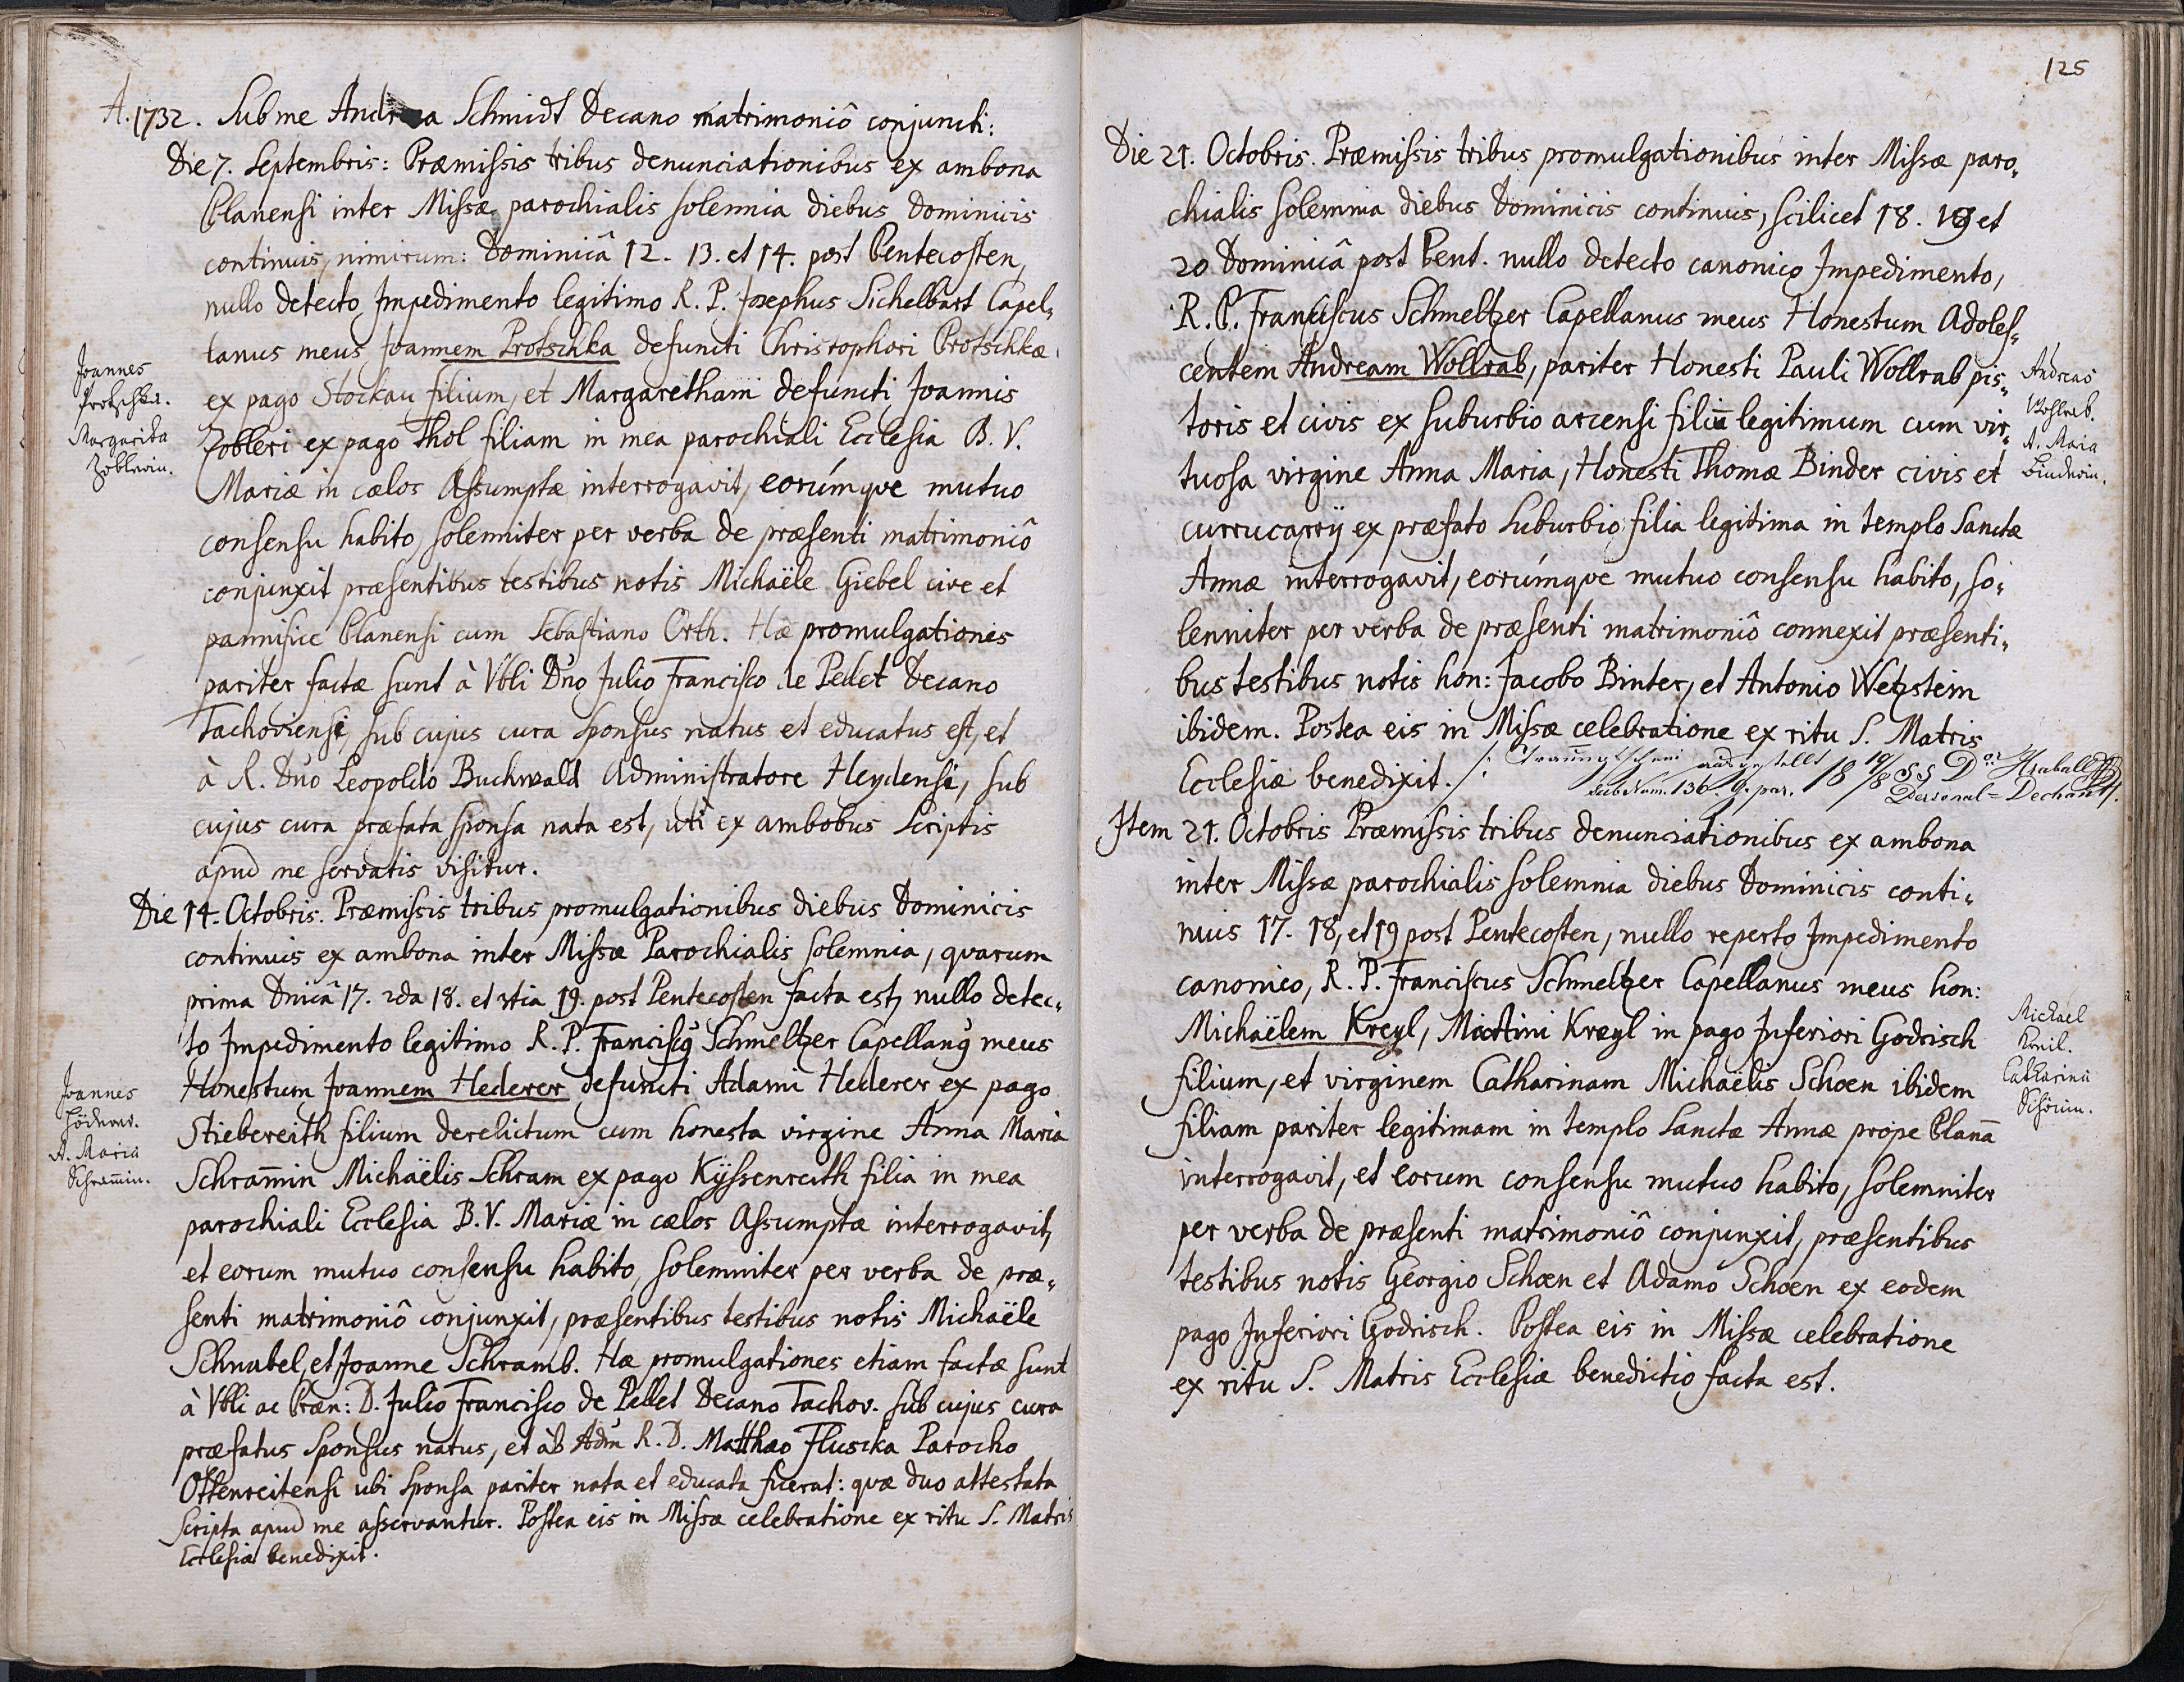 A. 1732. Sub me Andrea Schmidt Decano matrimoniô conjuncti:
Die 7. Septembris: Præmissis tribus denunciationibus ex ambona
Planensi inter Missæ parochialis solemnia diebus Dominicis
continuis, nimirum: Dominicâ 12. 13. et 14. post Pentecosten,
nullo detecto Impedimento legitimo R. P. Josephus Sichelbart Capel„
lanus meus Joannem Protschka defuncti Christophori Protschkæ
ex pago Stockau filium, et Margaretham defuncti Joannis
Zobleri ex pago Thol filiam in mea parochiali Ecclesia B. V.
Mariæ in cælos Assumptæ interrogavit, eorúmque mutuo
consensu habito, solemniter per verba de præsenti matrimoniô
conjunxit præsentibus testibus notis Michaële Giebel cive et
pannifice Planensi cum Sebastiano Orth. Hæ promulgationes
pariter factæ sunt à Vbli Dno Julio Francisco de Pellet Decano
Tachoviensi, sub cujus cura Sponsus natus et educatus est, et
à R. Dno Leopoldo Buchwald Administratore Heydensi, sub
cujus cura præfata sponsa nata est, uti ex ambobus Scriptis
apud me servatis visitur.
Joannes
Protschka.
Margarita
Zoblerin.
Die 14. Octobris. Præmissis tribus promulgationibus diebus Dominicis
continuis ex ambona inter Missæ Parochialis solemnia, quarum
prima Dnicâ 17. 2da 18. et 3tia 19. post Pentecosten facta est, nullo detec„
to Impedimento legitimo R. P. Franciscꝰ Schmeltzer Capellanꝰ meus
Honestum Joannem Hederer defuncti Adami Hederer ex pago
Stiebereith filium derelictum cum honesta virgine Anna Maria
Schram̄in Michaëlis Schram ex pago Kÿssenreith filia in mea
parochiali Ecclesia B. V. Mariæ in cælos Assumptæ interrogavit,
et eorum mutuo consensu habito, solemniter per verba de præ„
senti matrimoniô conjunxit, præsentibus testibus notis Michaële
Schnabel, et Joanne Schramb. Hæ promulgationes etiam factæ sunt
à Vbli ac Præn: D. Julio Francisco de Pellet Decano Tachov. sub cujus cura
præfatus Sponsus natus, et àb Adm R. D. Matthæo Fluscka Parocho
Ottenreitensi ubi Sponsa pariter nata et educata fuerat: quæ duo attestata
Scripta apud me asservantur. Postea eis in Missæ celebratione ex ritu S. Matris
Ecclesiæ benedixit.
Joannes
Höderer.
A. Maria
Schram̄in.
125
Die 21. Octobris. Præmissis tribus promulgationibus inter Missæ paro„
chialis solemnia diebus Dominicis continuis, scilicet 18. 19 et
20 Dominicâ post Pent. nullo detecto canonico Impedimento,
R. P. Franciscus Schmeltzer Capellanus meus Honestum Adoles„
centem Andream Wollrab, pariter Honesti Pauli Wollrab pis„
toris et civis ex suburbio arcensi filiū legitimum cum vir„
tuosa virgine Anna Maria, Honesti Thomæ Binder civis et
currucarrÿ ex præfato Suburbio filia legitima in templo Sanctæ
Annæ interrogavit, eorúmque mutuo consensu habito, so„
lenniter per verba de præsenti matrimoniô connexit præsenti„
bus testibus notis hon: Jacobo Binter, et Antonio Wetzstein
ibidem. Postea eis in Missæ celebratione ex ritu S. Matris
Ecclesiæ benedixit. /: Trauungsschein ausgestellt
sub Num. 136. g. par. 18 19/8 88 Dor Hrabal
Personal-Dechant.
Andreas
Wohlrab.
A. Maria
Binderin.
Item 21. Octobris Præmissis tribus denunciationibus ex ambona
inter Missæ parochialis solemnia diebus Dominicis conti„
nuis 17. 18, et 19 post Pentecosten, nullo reperto Impedimento
canonico, R. P. Franciscus Schmeltzer Capellanus meus hon:
Michaëlem Kreyl, Martini Kreyl in pago Inferiori Godrisch
filium, et virginem Catharinam Michaëlis Schoen ibidem
filiam pariter legitimam in templo Sanctæ Annæ prope Planā
interrogavit, et eorum consensu mutuo habito, solemniter
per verba de præsenti matrimoniô conjunxit, præsentibus
testibus notis Georgio Schoen et Adamo Schoen ex eodem
pago Inferiori Godrisch. Postea eis in Missæ celebratione
ex ritu S. Matris Ecclesiæ benedictio facta est.
Michael
Kreil.
Catharina
Schönin.